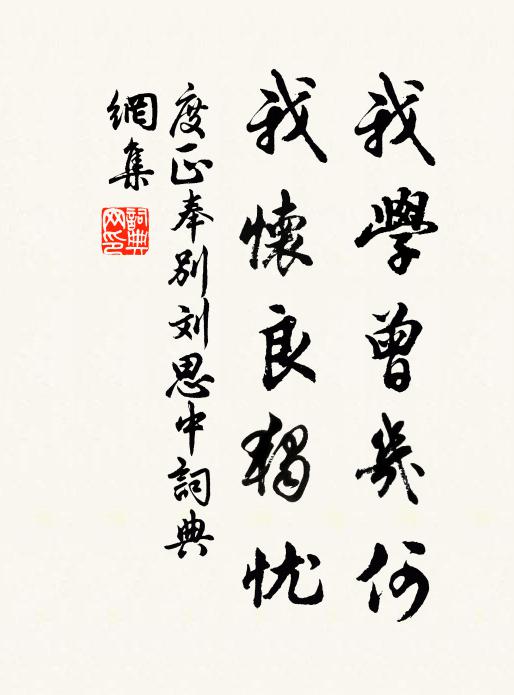 我學曾幾何
我懷良獨忧
度正奉别刘思中詞典
網集
詞典
网印